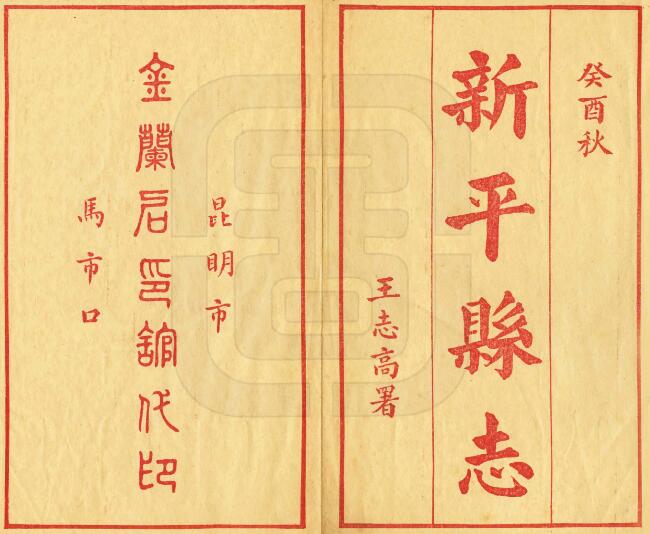 癸酉秋
新平縣志
王志高署
昆明市
金蘭石印館代印
馬市口